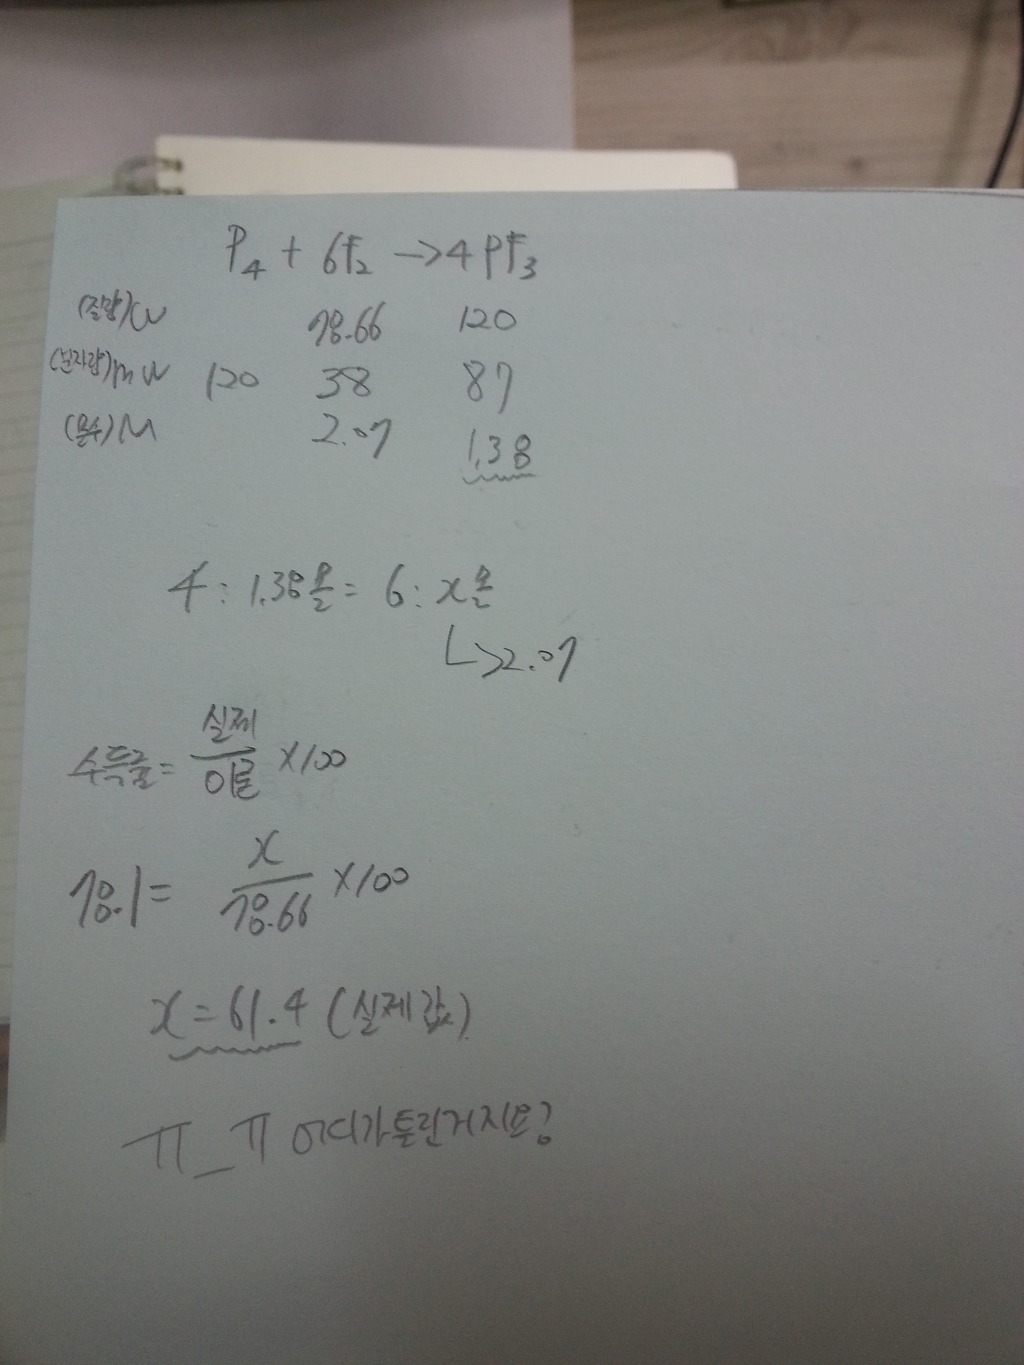 P4 + 6F2 → 4PF3
(질량)W 78.66 120
(분자량)mW 120 38 87
(몰수)M 2.07 1.38
4 : 1.38몰 = 6 : x몰
↳ 2.07
수득률 = 실제/이론 × 100
78.1 = x/78.66 × 100
x = 61.4 (실제값)
ㅠ_ㅠ 어디가 틀린거지요?